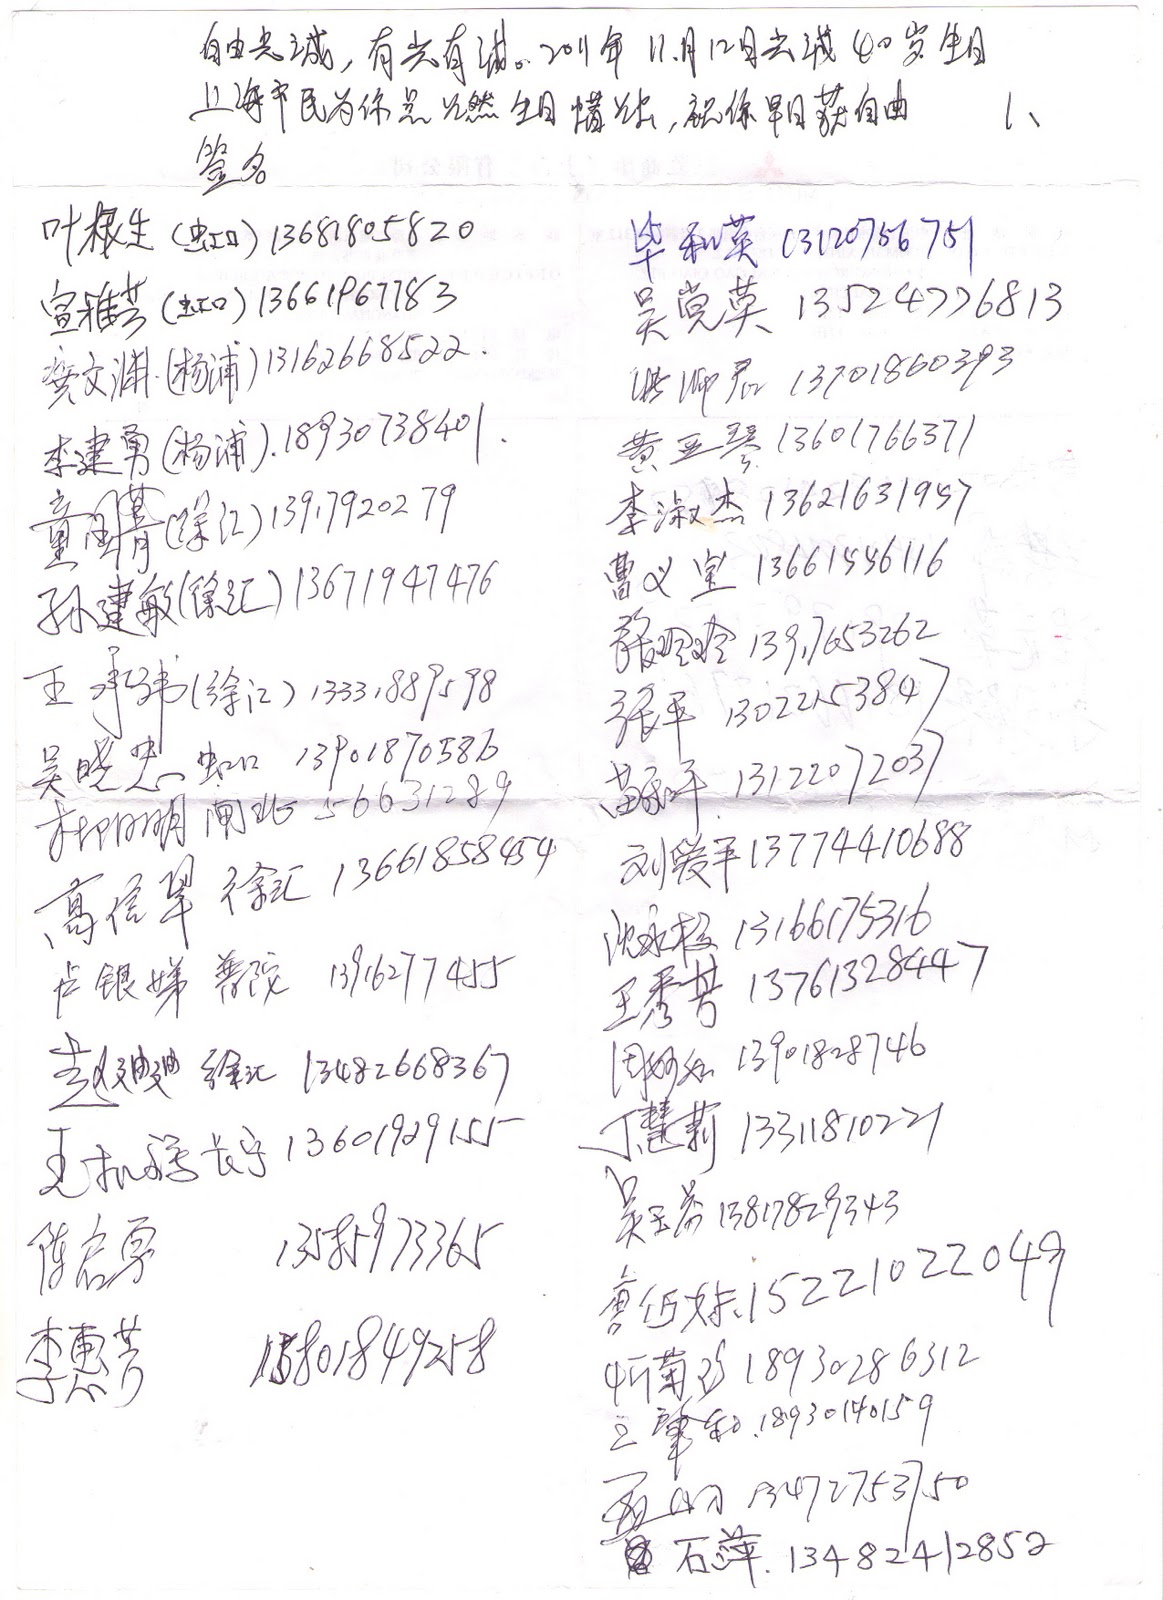 自由光诚，有光有诚。2011年11月12日光诚40岁生日
上海市民为你点燃生日蜡烛，祝你早日获自由 1、
签名
叶根生(虹口)13681805820
宣雅芳(虹口)13661967783
龚文渊(杨浦)13162668522.
李建勇(杨浦).18930738401.
童国菁(徐汇)13917920279
孙建敏(徐汇)13671947476
王 (徐汇)13331889598
吴晓 虹口 13901870586
明 闸北 56631289
高信翠 徐汇 13661858454
卢银娣 普陀 13916277455
赵迪迪 徐汇 13482668367
王 长宁 13601929155
陈启勇 13585973365
李惠芳 13801849258
毕和英 13120756751
吴党英 13524776813
洪 君 13701860393
黄亚琴 13601766371
李淑杰 13621631957
曹义宝 13661556116
张玲玲 13917653262
张平 13022153847
苗和平 13122072037
刘爱平 13774410688
沈永梅 13166175316
王秀芳 13761328447
周 13901828746
丁慧莉 13311810221
吴玉芬 13817829343
妹 15221022049
忻菊珍 18930286312
王肇和.18930140159
13472753750
石萍.13482412852